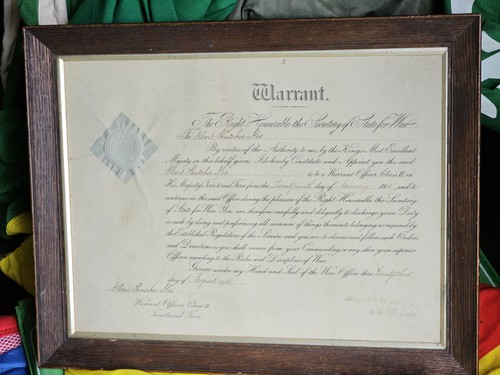 Warrant.
The Right Honourable the Secretary of State for War
To Albert
By virtue of the Authority to me by the King's Most Excellent
Majesty in this behalf given I do hereby Constitute and Appoint you the said
Albert to be a Warrant Officer, Class II. in
His Majesty's Territorial Force from the day of January and to
continue in the said Office during the pleasure of the Right Honourable the Secretary
of State for War. You are therefore carefully and diligently to discharge your Duty
as such by doing and performing all manner of things thereunto belonging as required by
the Established Regulations of the Service, and you are to observe and follow such Orders
and Directions as you shall receive from your Commanding or any other your superior
Officer, according to the Rules and Discipline of War.
Given under my Hand and Seal of the War Office this
day of August
Albert
Warrant Officer, Class II.
Territorial Force.